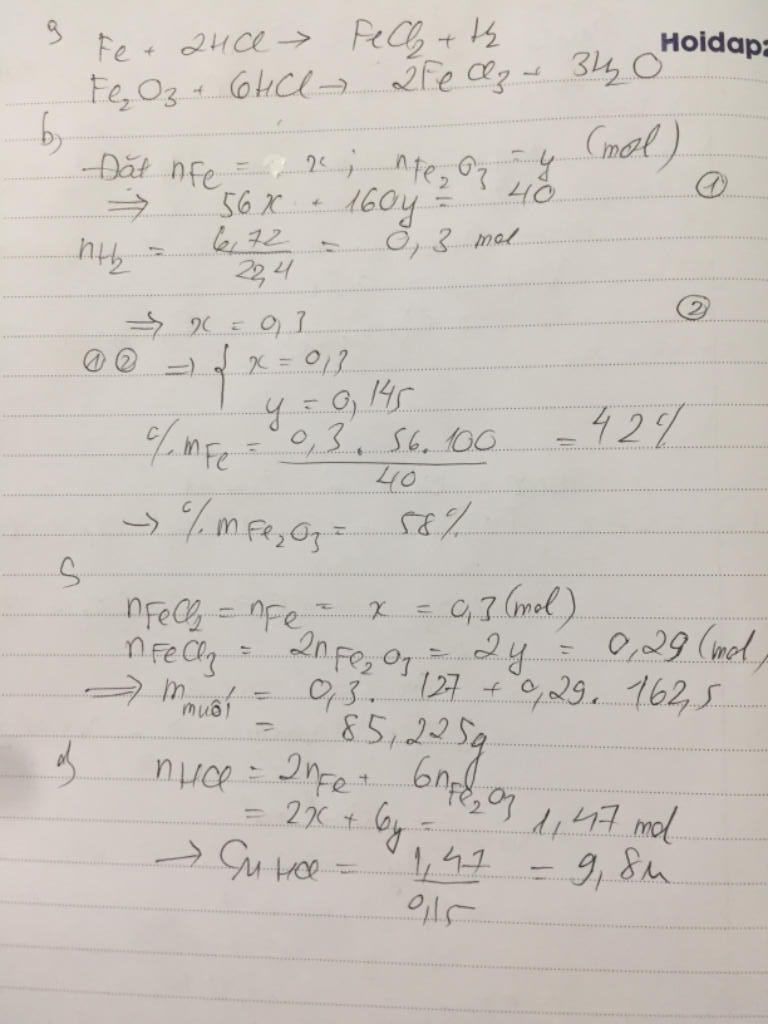 a) Fe + 2HCl → FeCl₂ + H₂
Hoidap2
Fe₂O₃ + 6HCl → 2FeCl₃ + 3H₂O
b)
Đặt nFe = x ; nFe₂O₃ = y (mol)
⇒ 56x + 160y = 40 ①
nH₂ = 6,72/22,4 = 0,3 mol
⇒ x = 0,3 ②
①② ⇒ { x = 0,3
y = 0,145
%mFe = 0,3 . 56 . 100/40 = 42%
→ %mFe₂O₃ = 58%
c)
nFeCl₂ = nFe = x = 0,3 (mol)
nFeCl₃ = 2nFe₂O₃ = 2y = 0,29 (mol)
⇒ m muối = 0,3 . 127 + 0,29 . 162,5
= 85,225g
d) nHCl = 2nFe + 6nFe₂O₃
= 2x + 6y = 1,47 mol
→ CM HCl = 1,47/0,15 = 9,8M